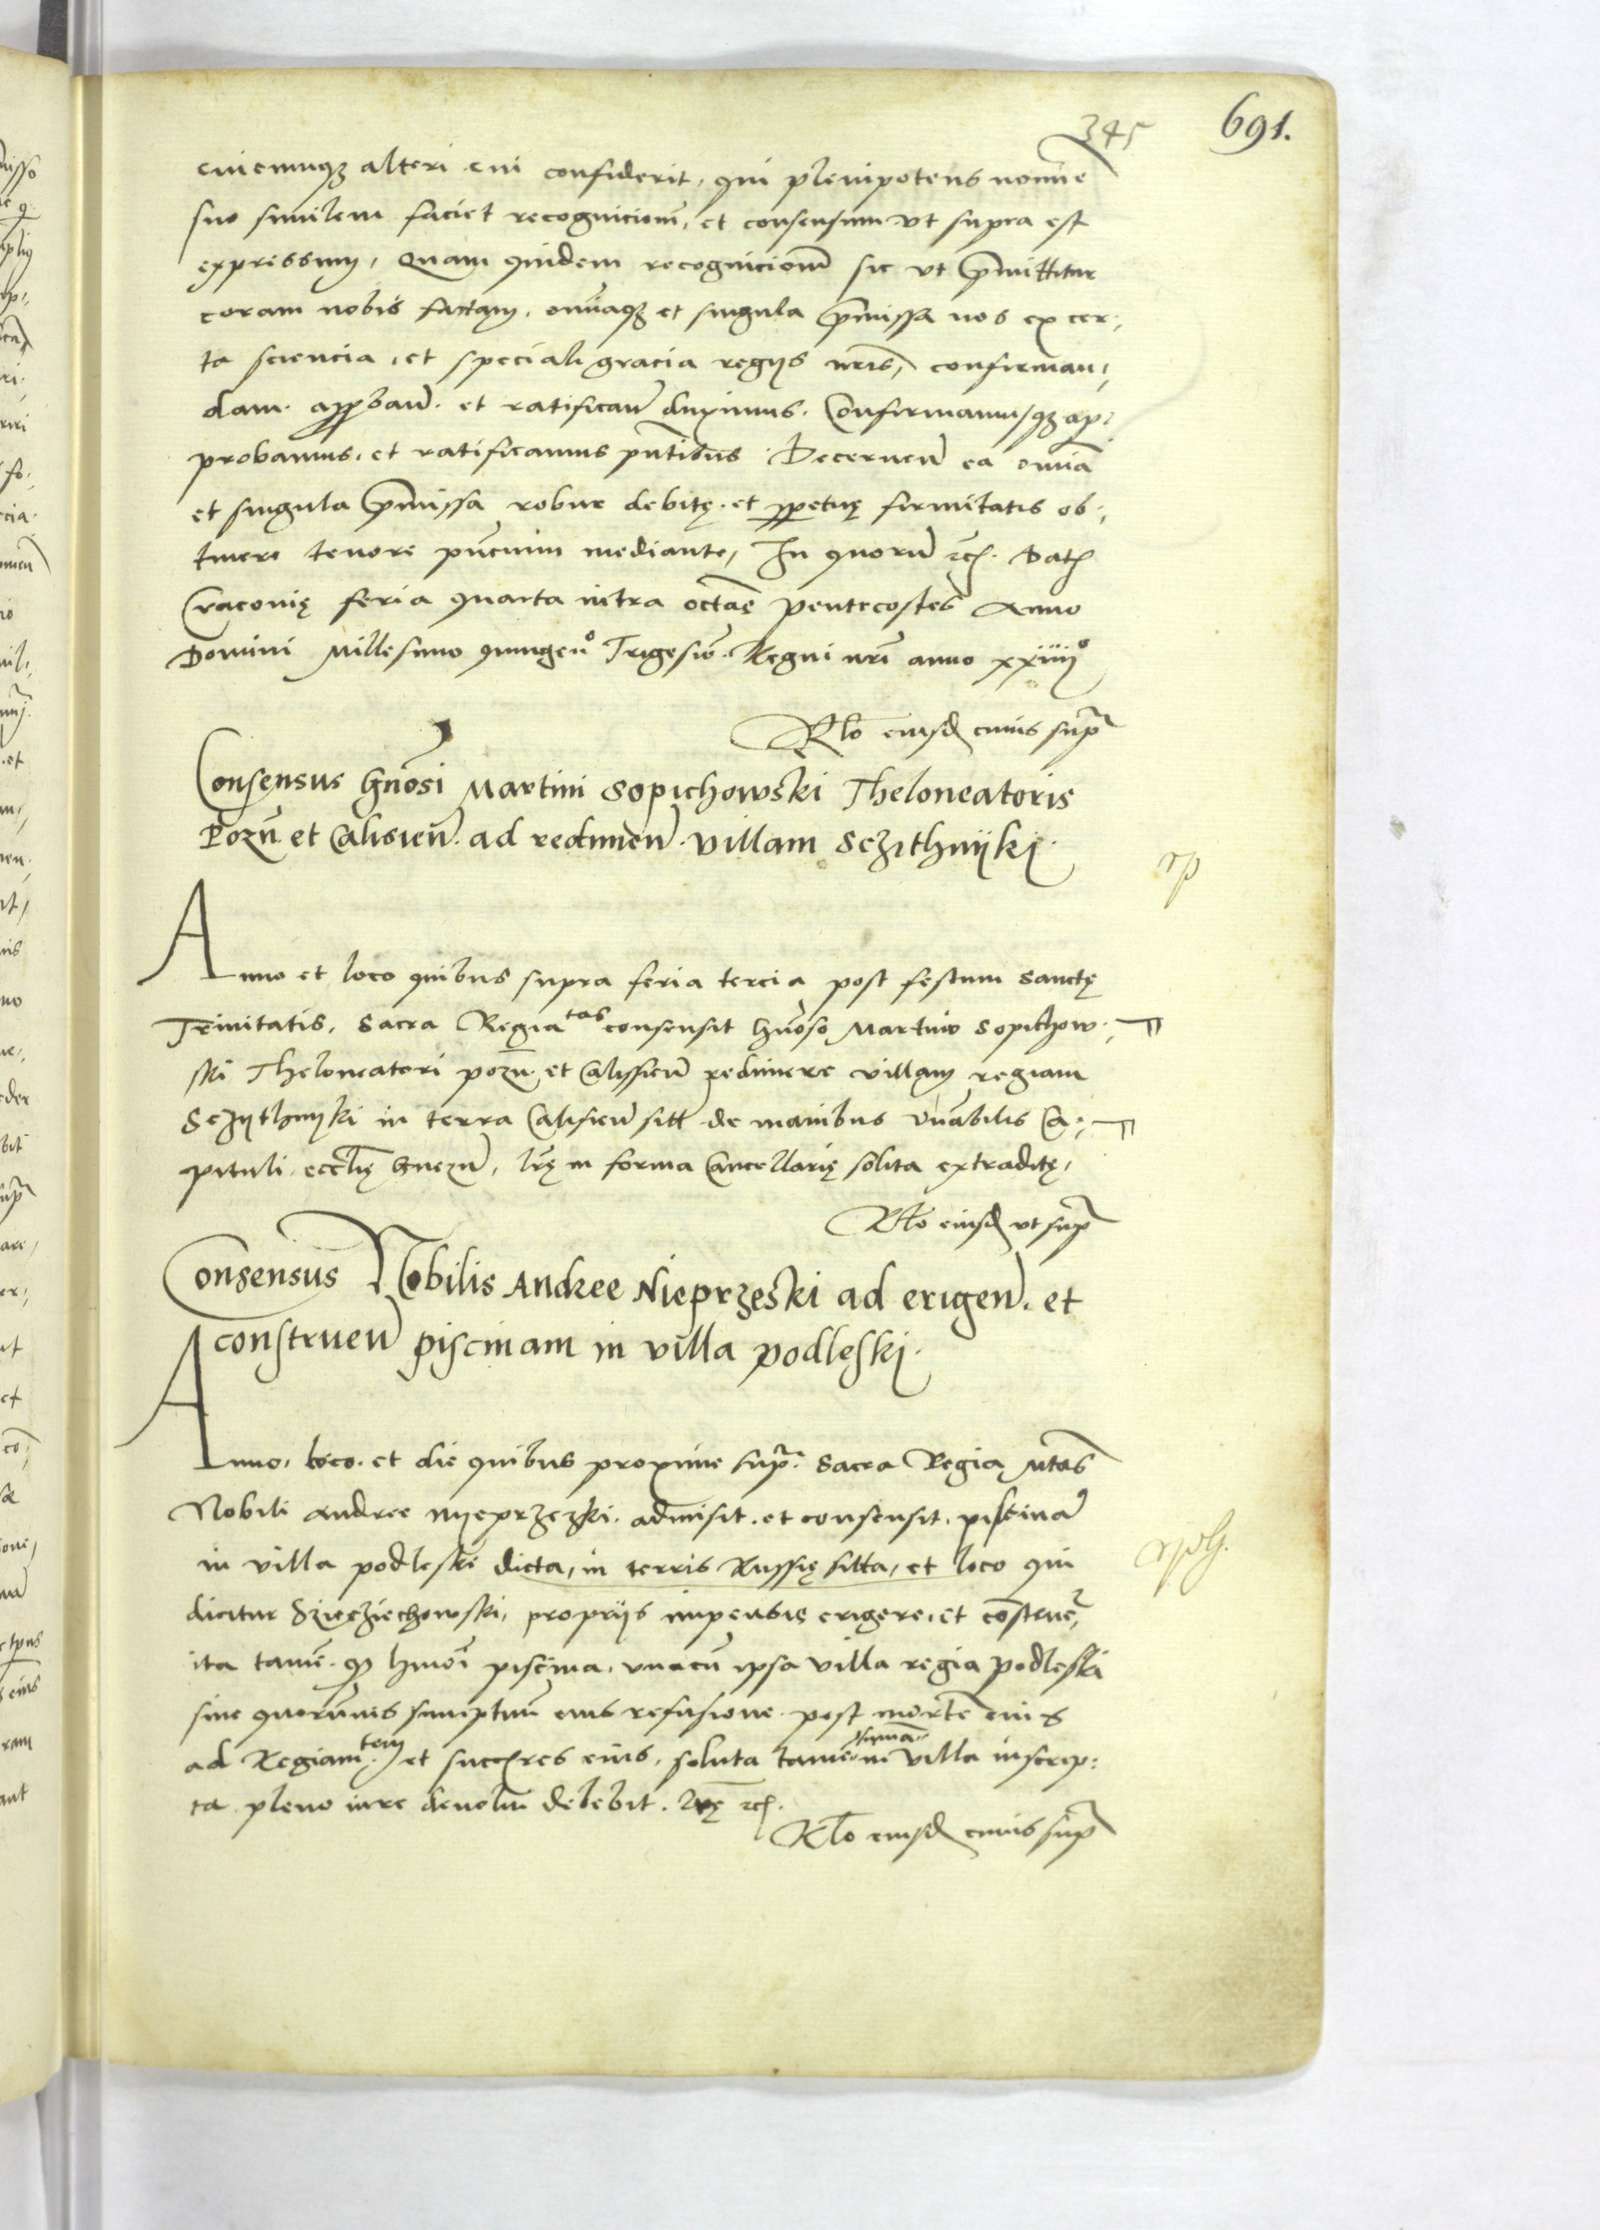 345
691.
cuicumq; alteri cui confiderit, qui plenipotens nomine
suo similem faciet recognicionem, et consensum ut supra est
expressum, Quam quidem recognicionem sic ut p̄mittitur
coram nobis factam, omniaq; et singula p̄missa nos ex cer,
ta sciencia, et speciali gracia regijs nr̄is, confirman,
dam. approban̄. et ratifican̄ duximus. Confirmamusq; ap,
probamus, et ratificamus pn̄tibus. Decernen̄ ea omnia
et singula p̄missa robur debitę. et perpetuę firmitatis ob,
tinere tenore pn̄cium mediante, In quorū etc. Dat̄
Cracovię feria quarta intra octāē Pentecostes Anno
Domini Millesimo quingen̄º Trigesiō. Regni nr̄i anno xxiiijº
Rlō eiusd cuius supr̄
Consensus Gn̄osi Martini Sopichowski Theloneatoris
Pozn̄ et Calisien̄. ad redimen̄. villam Sczithnijki.
rp
Anno et loco quibus supra feria tercia post festum Sanctę
Trinitatis, Sacra Regia tas consensit Gn̄oso Martino Sopichow,
ski Theloneatori pozn̄. et Calissien̄ redimere villam regiam
Sczythnyki in terra Calisien̄ sitt̄ de manibus Vn̄abilis Ca,
pituli ecclīę Gnezn̄, lr̄ę in forma Cancellarię solita extraditę,
Rlō eiusd ut supr̄
Consensus Nobilis Andree Nieprzeski ad erigen̄. et
construen̄ piscinam in villa podleski.
Anno, loco. et die quibus proxime supr̄. Sacra Regia Mtas
Nobili Andree Nyeprzezki. admisit. et consensit. piscinā
in villa podleski dicta, in terris Russię sitta, et loco qui
dicitur Sziecziechowski, proprijs impensis erigere, et cōstruer̄,
ita tamē. q; hmōi piscina, unacū ipsa villa regia Podleski
sine quorūvis sumptuū eius refusione. post mortē eius
ad Regiam tem et succ̄res eius, soluta tamē sum̄a in villa inscrip,
ta pleno iure devolvi debebit. lr̄ę etc.
Rlō eiusd cuius supr̄